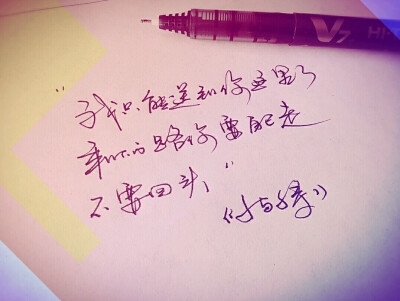 V7
HI-
"我只能送到你这里了
剩下的路你要自己走
不要回头"
《千与千寻》